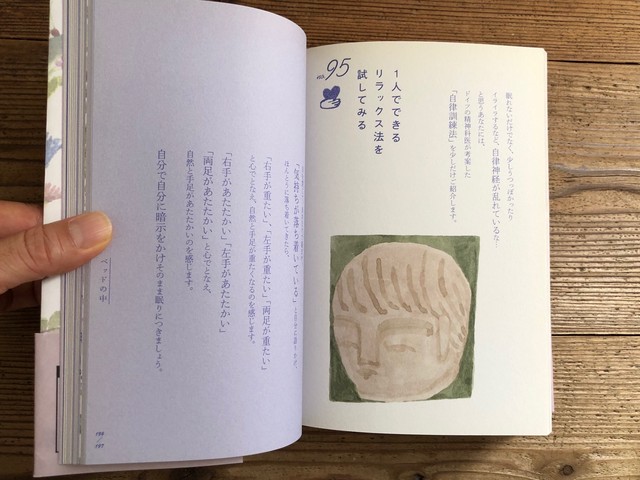 no. 95
1人でできる
リラックス法を
試してみる
眠れないだけでなく、少しうつっぽかったり
イライラするなど、自律神経が乱れているな…
と思うあなたには、
ドイツの精神科医が考案した
「自律訓練法」を少しだけご紹介します。
「気持ちが落ち着いている」
ほんとうに落ち着いてきたら、
「右手が重たい」「左手が重たい」「両足が重たい」
と心でとなえ、自然と手足が重たくなるのを感じます。
「右手があたたかい」「左手があたたかい」
「両足があたたかい」と心でとなえ、
自然と手足があたたかいのを感じます。
自分で自分に暗示をかけそのまま眠りにつきましょう。
ベッドの中